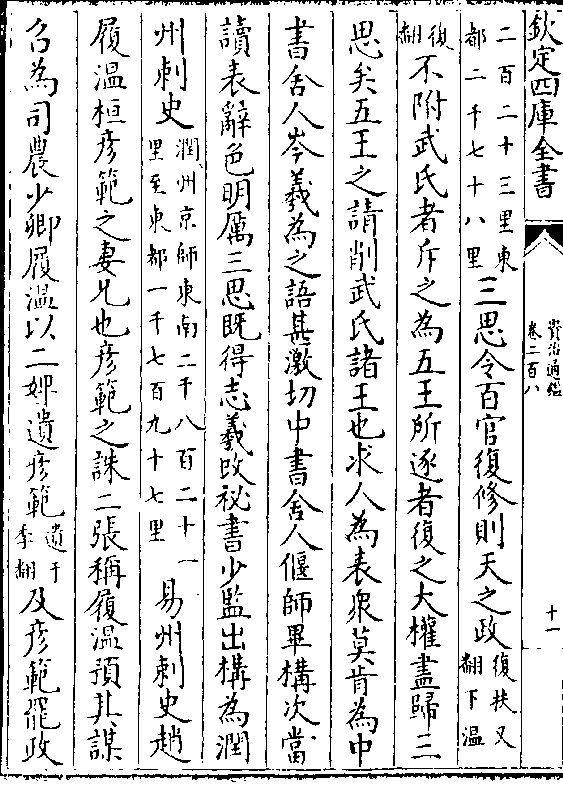 欽定四庫全書
資治通鑑
卷二百八
十一
二百二十三里東
都二千七十八里
三思令百官復修則天之政
復扶又
翻下温
復
翻
不附武氏者斥之為五王所逐者復之大權盡歸三
思矣五王之請削武氏諸王也求人為表衆莫肯為中
書舍人岑羲為之語甚激切中書舍人偃師畢構次當
讀表辭色明厲三思既得志羲改祕書少監出構為潤
州刺史
潤州京師東南二千八百二十一
里至東都一千七百九十七里
易州刺史趙
履溫桓彦範之妻兄也彦範之誅二張稱履溫預其謀
召為司農少卿履溫以二婢遺彦範
遺于
季翻
及彦範罷政